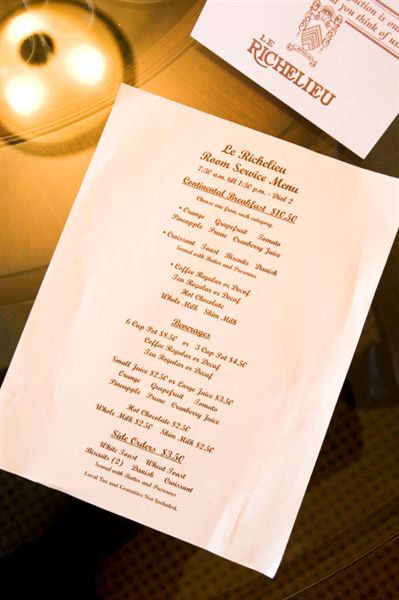 action is our
t you think of us.
LE
RICHELIEU
Le Richelieu
Room Service Menu
7:30 a.m. till 1:30 p.m. - Dial 2
Continental Breakfast $10.50
Choose one from each category.
• Orange Grapefruit Tomato
Pineapple Prune Cranberry Juice
• Croissant Toast Biscuits Danish
Served with Butter and Preserves
• Coffee Regular or Decaf
Tea Regular or Decaf
Hot Chocolate
Whole Milk Skim Milk
Beverages
6 Cup Pot $8.50 or 3 Cup Pot $4.50
Coffee Regular or Decaf
Tea Regular or Decaf
Small Juice $2.50 or Large Juice $3.50
Orange Grapefruit Tomato
Pineapple Prune Cranberry Juice
Hot Chocolate $2.50
Whole Milk $2.50 Skim Milk $2.50
Side Orders $3.50
White Toast Wheat Toast
Biscuits (2) Danish Croissant
Served with Butter and Preserves
Local Tax and Gratuities Not Included.